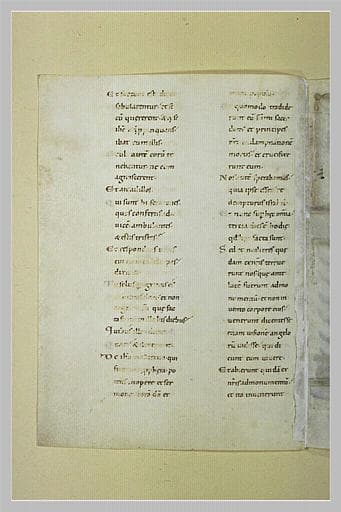 Et factum est dum
fabularentur & se
cū quererent & ipse
ihs appropinquans
ibat cum illis
Ocul autē eorū te
nebantur ne eum
agnoscerent
Et ait ad illos
Qui sunt hi sermones
quos confertis ad in
vicē ambulantes
& estis tristes
Et respondens unus
cui nomen cleopas
dixit ei
Tu solus peregrinus es
et non
que fac
ta sunt in illa his diebus
Quibus ille dixit
& dixerunt
De ihu nazareno qui
fuit propheta po
tens in opere et ser
mone corā dō et
omni populo
Et quomodo tradide
runt eū summi sacer
dotes et principes
nri in damnatione
mortis et crucifixe
runt eum
Nos autē sperabamus
quia ipse esset re
dempturus israhel
Et nunc super hec omnia
tercia dies ē hodie
qd hec facta sunt
Sed et mulieres que
dam ex nris terrue
runt nos que ante
lucē fuerunt ad mo
numentū et non in
vento corpore eius
venerunt dicentes se
etiam visionē angelo
rū vidisse qui di
cunt eum vivere
Et abierunt quidā ex
nris ad monumentū
et invenerunt